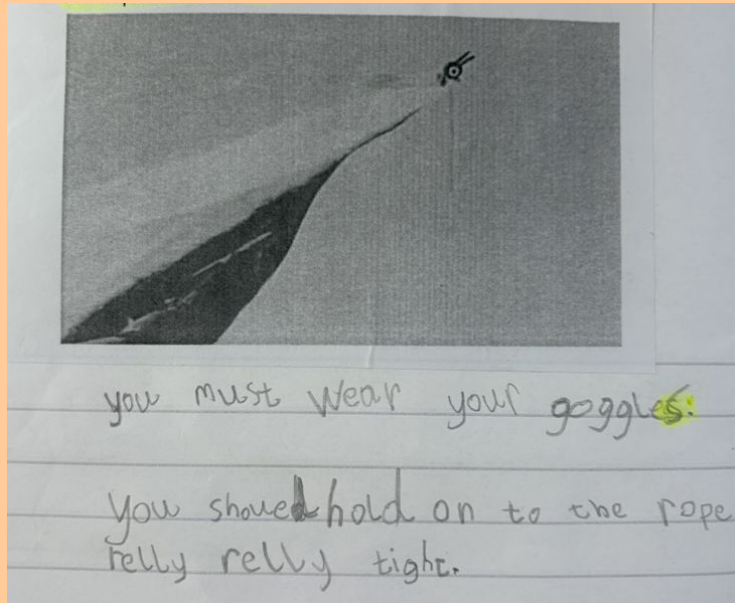 you must wear your goggles.
You shoued hold on to the rope
relly relly tight.